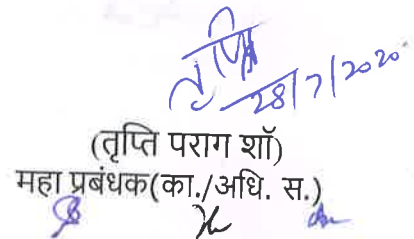 तृप्ति
28/7/2020
(तृप्ति पराग शॉ)
महा प्रबंधक(का./अधि. स.)